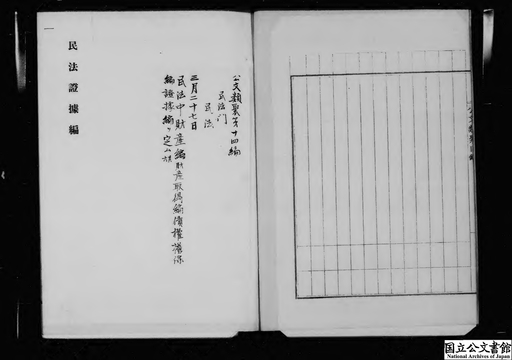 公文類聚第十四編
民法門
民法
三月二十七日
民法中財産編財産取得編債權擔保
編證據編ヲ定ム
民法證據編
国立公文書館
National Archives of Japan